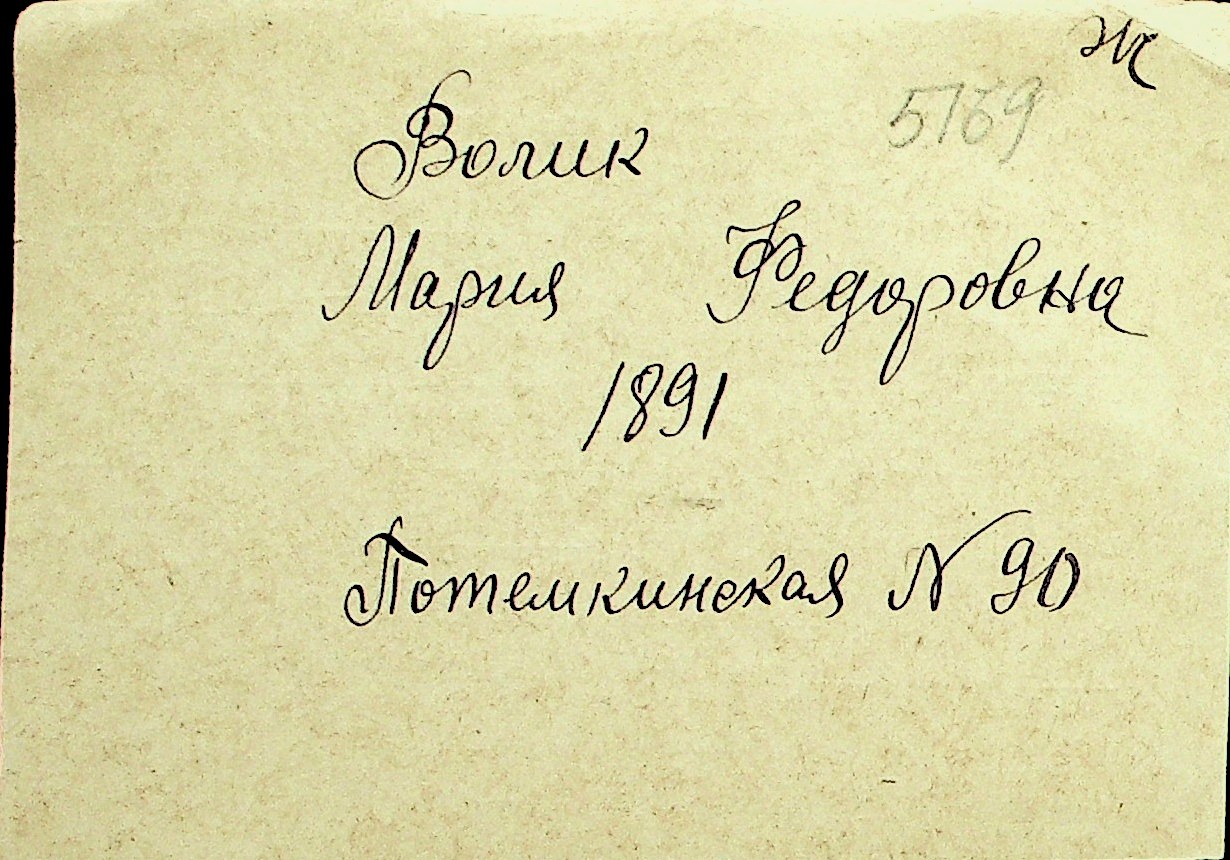 Ж
5169
Волик
Мария Федоровна
1891
Потемкинская N 90